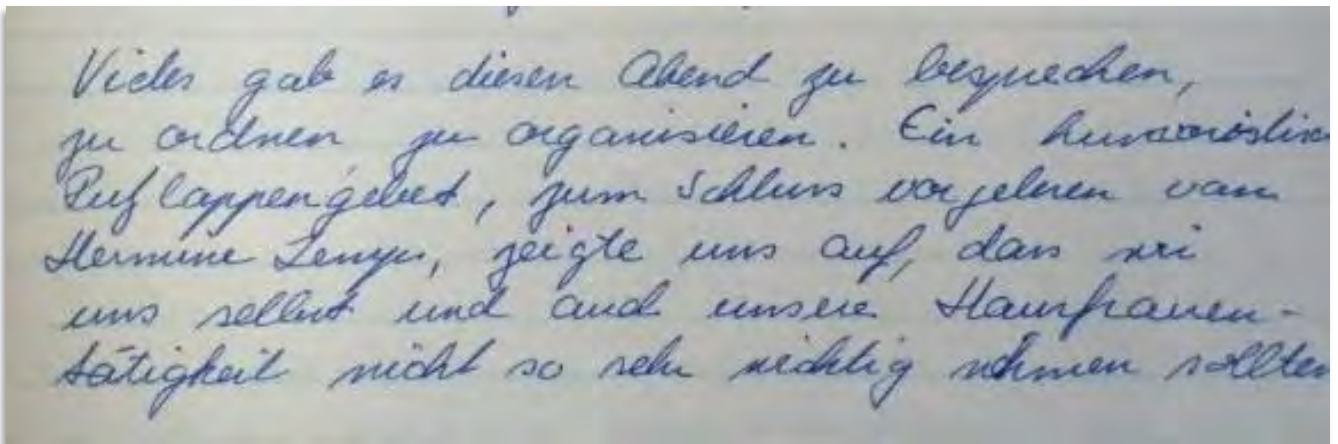 Vieles gab es diesen Abend zu besprechen,
zu ordnen zu organisieren. Ein humoristisc
Putzlappengebet, zum Schluss vorgelesen von
Hermine, zeigte uns auf, dass wir
uns selbst und auch unsere Hausfrauen-
tätigkeit nicht so sehr wichtig nehmen sollten